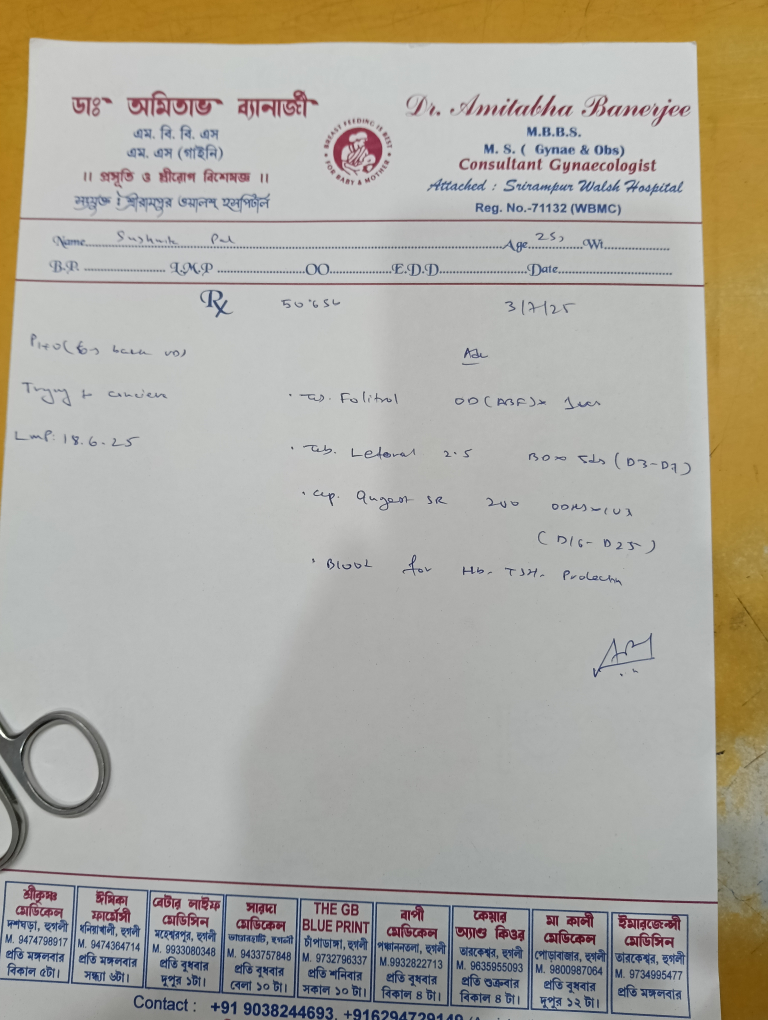 ডাঃ অমিতাভ ব্যানার্জী
এম. বি. বি. এস
এম. এস (গাইনি)
।। প্রসূতি ও স্ত্রীরোগ বিশেষজ্ঞ ।।
সংযুক্ত : শ্রীরামপুর ওয়ালশ হসপিটাল
BREAST FEEDING IS BEST
FOR BABY & MOTHER
Dr. Amitabha Banerjee
M.B.B.S.
M. S. ( Gynae & Obs)
Consultant Gynaecologist
Attached : Srirampur Walsh Hospital
Reg. No.-71132 (WBMC)
Name Pal Age 25 Wt
B.P. L.M.P OO E.D.D Date
Rx 3/7/25
Adv
Trying to
LMP: 18.6.25
Tab. Folitrol OD (ABF) x
Tab. Letoral 2.5 x 5ds (D3-D7)
Cap. SR 200
(D16-D25)
Blood for Hb- TSH- Prolactin
শ্রীকৃষ্ণ মেডিকেল
দশঘড়া, হুগলী
M. 9474798917
প্রতি মঙ্গলবার
বিকাল ৫টা।
ঈমিকা ফার্মেসী
ধনিয়াখালী, হুগলী
M. 9474364714
প্রতি মঙ্গলবার
সন্ধ্যা ৬টা।
বেটার লাইফ মেডিসিন
মহেশ্বরপুর, হুগলী
M. 9933080348
প্রতি বুধবার
দুপুর ১টা।
সারদা মেডিকেল
হুগলী
M. 9433757848
প্রতি বুধবার
বেলা ১০ টা।
THE GB BLUE PRINT
চাঁপাডাঙ্গা, হুগলী
M. 9732796337
প্রতি শনিবার
সকাল ১০ টা।
বাপী মেডিকেল
পঞ্চাননতলা, হুগলী
M.9932822713
প্রতি বুধবার
বিকাল ৪ টা।
কেয়ার অ্যাণ্ড কিওর
তারকেশ্বর, হুগলী
M. 9635955093
প্রতি শুক্রবার
বিকাল ৪ টা।
মা কালী মেডিকেল
পোড়াবাজার, হুগলী
M. 9800987064
প্রতি বুধবার
দুপুর ১২ টা।
ইমারজেন্সী মেডিসিন
তারকেশ্বর, হুগলী
M. 9734995477
প্রতি মঙ্গলবার
Contact : +91 9038244693, +916294729149